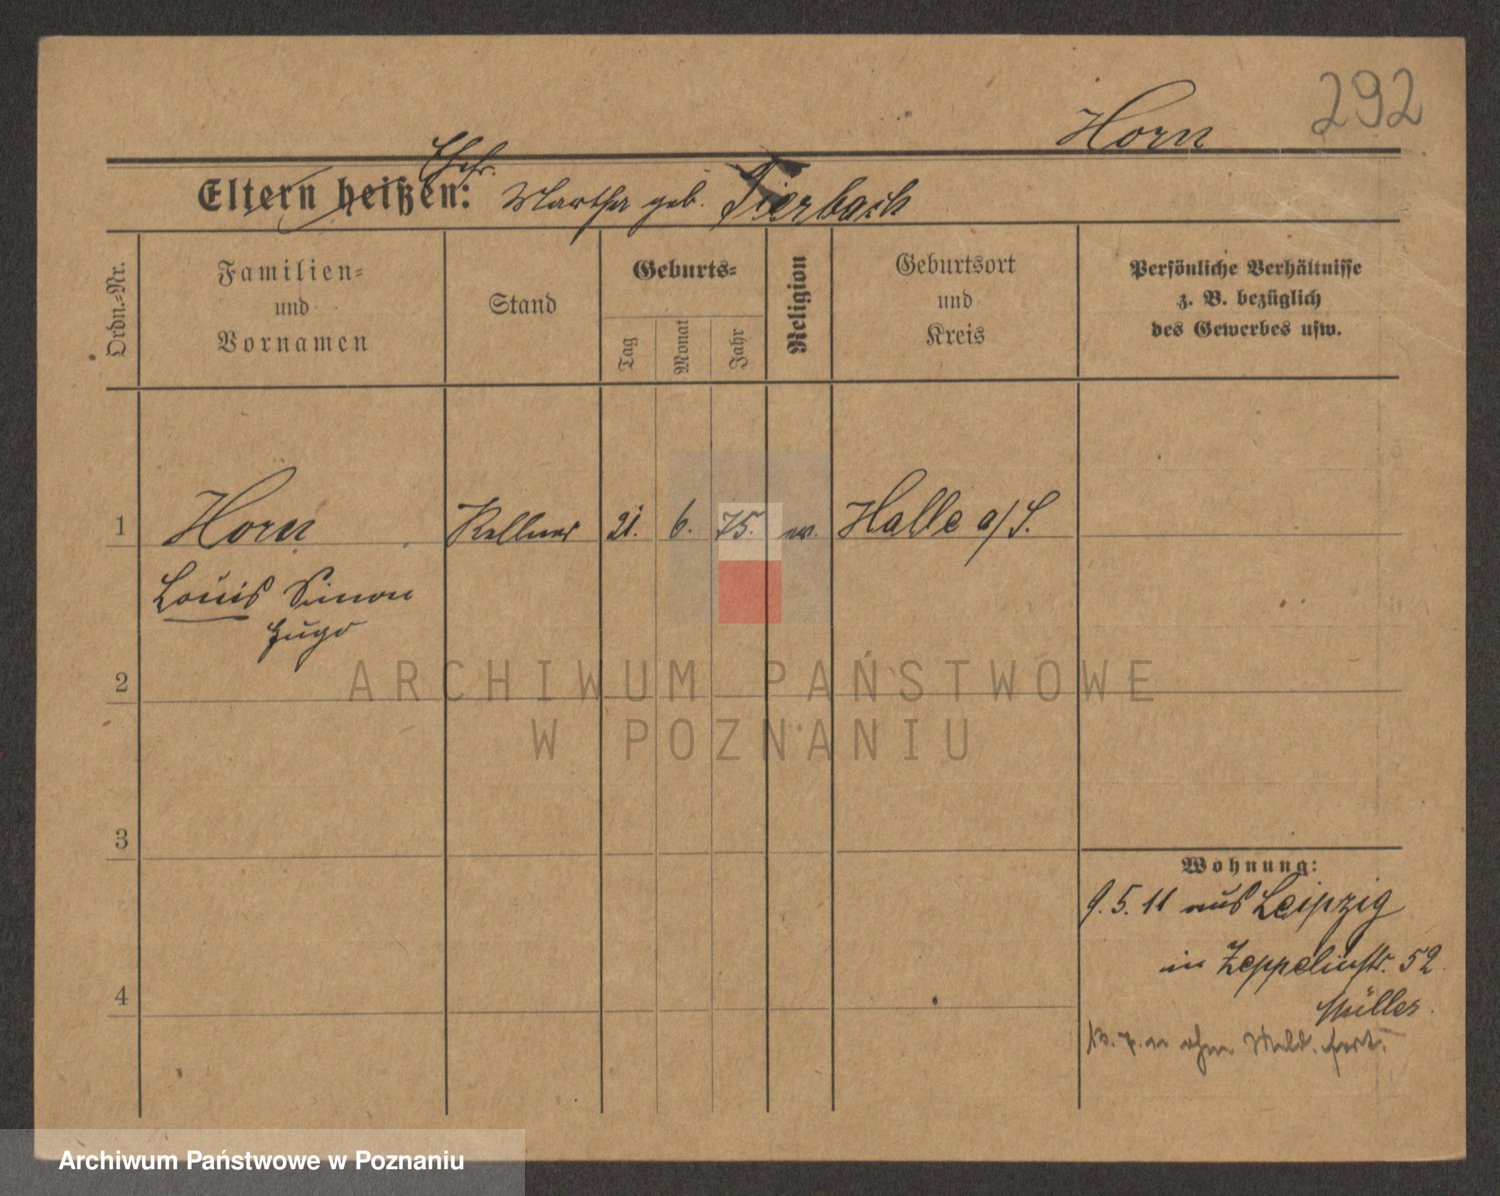 292
Horn
Ehefr.
Eltern heißen: Martha geb. Tierbach
Ordn.-Nr.
Familien-
und
Vornamen
Stand
Geburts-
Tag
Monat
Jahr
Religion
Geburtsort
und
Kreis
Persönliche Verhältnisse
z. B. bezüglich
des Gewerbes usw.
1 Horn Kellner 21. 6. 75. ev. Halle a/S.
Louis Simon
Hugo
2
ARCHIWUM PAŃSTWOWE
W POZNANIU
3
Wohnung:
9.5.11 aus Leipzig
in Zeppelinstr. 52
Müller.
4
13. 7. 11 ohne Meld. fort.
Archiwum Państwowe w Poznaniu